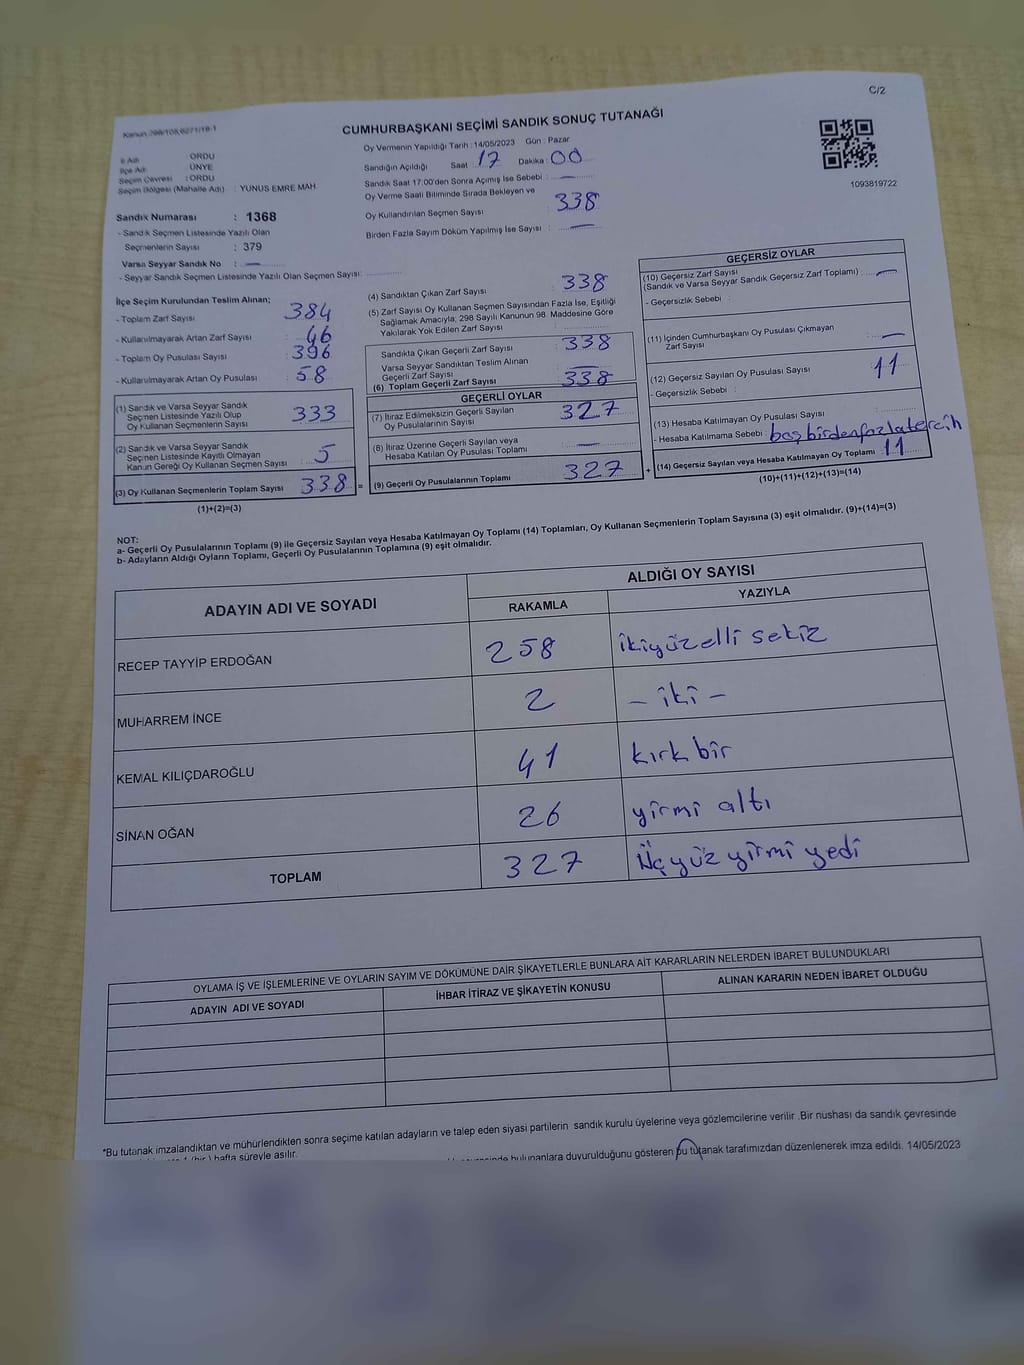 C/2
Kanun:298/105,6271/18-1
CUMHURBAŞKANI SEÇİMİ SANDIK SONUÇ TUTANAĞI
İl Adı : ORDU
İlçe Adı : ÜNYE
Seçim Çevresi : ORDU
Seçim Bölgesi (Mahalle Adı) : YUNUS EMRE MAH.
Oy Vermenin Yapıldığı Tarih : 14/05/2023 Gün : Pazar
Sandığın Açıldığı Saat : 17 Dakika : 00
Sandık Saat 17:00'den Sonra Açımış İse Sebebi : —
Oy Verme Saati Bitiminde Sırada Bekleyen ve
Oy Kullandırılan Seçmen Sayısı 338
Birden Fazla Sayım Döküm Yapılmış İse Sayısı : —
1093819722
Sandık Numarası : 1368
- Sandık Seçmen Listesinde Yazılı Olan
Seçmenlerin Sayısı : 379
Varsa Seyyar Sandık No : —
- Seyyar Sandık Seçmen Listesinde Yazılı Olan Seçmen Sayısı:
İlçe Seçim Kurulundan Teslim Alınan;
- Toplam Zarf Sayısı 384
- Kullanılmayarak Artan Zarf Sayısı 46
- Toplam Oy Pusulası Sayısı 396
- Kullanılmayarak Artan Oy Pusulası 58
(1) Sandık ve Varsa Seyyar Sandık
Seçmen Listesinde Yazılı Olup
Oy Kullanan Seçmenlerin Sayısı 333
(2) Sandık ve Varsa Seyyar Sandık
Seçmen Listesinde Kayıtlı Olmayan
Kanun Gereği Oy Kullanan Seçmen Sayısı 5
(3) Oy Kullanan Seçmenlerin Toplam Sayısı 338 =
(1)+(2)=(3)
(4) Sandıktan Çıkan Zarf Sayısı 338
(5) Zarf Sayısı Oy Kullanan Seçmen Sayısından Fazla İse, Eşitliği
Sağlamak Amacıyla; 298 Sayılı Kanunun 98. Maddesine Göre
Yakılarak Yok Edilen Zarf Sayısı
Sandıkta Çıkan Geçerli Zarf Sayısı 338
Varsa Seyyar Sandıktan Teslim Alınan
Geçerli Zarf Sayısı —
(6) Toplam Geçerli Zarf Sayısı 338
GEÇERLİ OYLAR
(7) İtiraz Edilmeksizin Geçerli Sayılan
Oy Pusulalarının Sayısı 327
(8) İtiraz Üzerine Geçerli Sayılan veya
Hesaba Katılan Oy Pusulası Toplamı —
(9) Geçerli Oy Pusulalarının Toplamı 327 +
GEÇERSİZ OYLAR
(10) Geçersiz Zarf Sayısı
(Sandık ve Varsa Seyyar Sandık Geçersiz Zarf Toplamı) : —
- Geçersizlik Sebebi :
(11) İçinden Cumhurbaşkanı Oy Pusulası Çıkmayan
Zarf Sayısı : —
(12) Geçersiz Sayılan Oy Pusulası Sayısı : 11
- Geçersizlik Sebebi :
(13) Hesaba Katılmayan Oy Pusulası Sayısı
- Hesaba Katılmama Sebebi : boş birden fazla tercih
(14) Geçersiz Sayılan veya Hesaba Katılmayan Oy Toplamı 11
(10)+(11)+(12)+(13)=(14)
NOT:
a- Geçerli Oy Pusulalarının Toplamı (9) ile Geçersiz Sayılan veya Hesaba Katılmayan Oy Toplamı (14) Toplamları, Oy Kullanan Seçmenlerin Toplam Sayısına (3) eşit olmalıdır. (9)+(14)=(3)
b- Adayların Aldığı Oyların Toplamı, Geçerli Oy Pusulalarının Toplamına (9) eşit olmalıdır.
ADAYIN ADI VE SOYADI
ALDIĞI OY SAYISI
RAKAMLA YAZIYLA
RECEP TAYYİP ERDOĞAN 258 ikiyüzelli sekiz
MUHARREM İNCE 2 - iki -
KEMAL KILIÇDAROĞLU 41 kırk bir
SİNAN OĞAN 26 yirmi altı
TOPLAM 327 Üçyüz yirmi yedi
OYLAMA İŞ VE İŞLEMLERİNE VE OYLARIN SAYIM VE DÖKÜMÜNE DAİR ŞİKAYETLERLE BUNLARA AİT KARARLARIN NELERDEN İBARET BULUNDUKLARI
ADAYIN ADI VE SOYADI İHBAR İTİRAZ VE ŞİKAYETİN KONUSU ALINAN KARARIN NEDEN İBARET OLDUĞU
*Bu tutanak imzalandıktan ve mühürlendikten sonra seçime katılan adayların ve talep eden siyasi partilerin sandık kurulu üyelerine veya gözlemcilerine verilir .Bir nüshası da sandık çevresinde
hafta süreyle asılır.
bulunanlara duyurulduğunu gösteren bu tutanak tarafımızdan düzenlenerek imza edildi. 14/05/2023